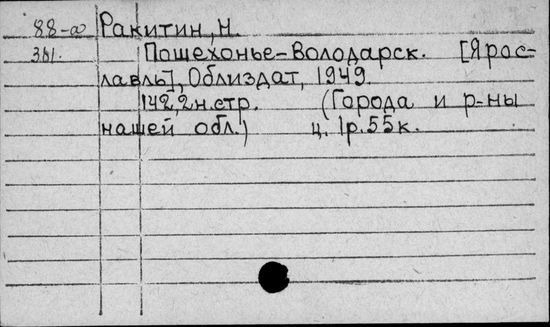 88-а Ракитин, Н.
381. Пошехонье-Володарск. [Ярос-
лавль], Облиздат, 1949.
142,2н.стр. (Города и р-ны
нашей обл.) ц. 1р.55к.